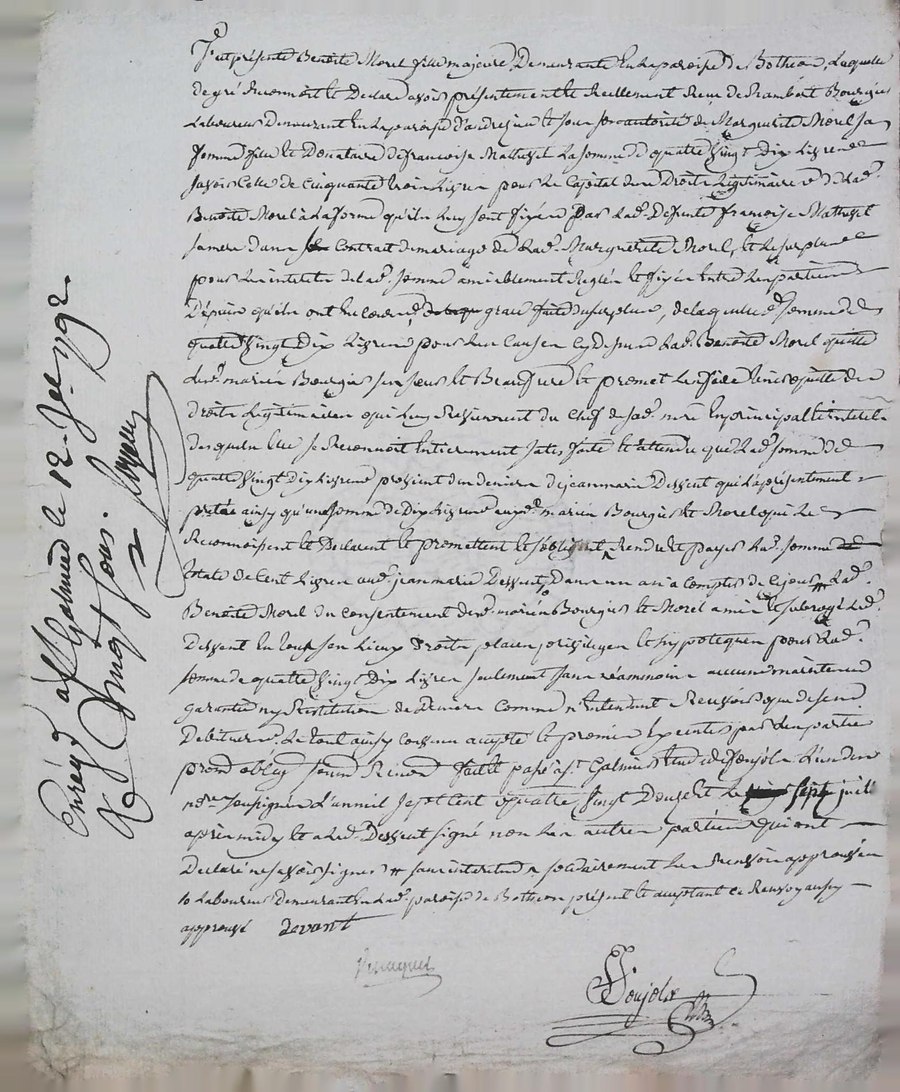 Fut présente Benoite Morel fille majeure Demeurante En la paroisse de Bothéon, Laquelle
de gré Reconnoit et Declare avoir présentement et Reellement Reçu de Rambert Bourgier
Laboureur Demeurant En la paroisse d'andrezieu et sous autorité de Marguerite Morel sa
femme fille et Donataire de françoise Mathevet La somme de quatre Vingt Dix Livres
savoir Celle de Cinquante trois Livres pour Le Capital Droits Legitimaires de lad.
Benoite Morel a La forme qu'ils Luy sont fixés par Lad. Defunte françoise Mathevet
sa mere dans Contrat de mariage de Lad. Marguerite Morel, et Le surplus
pour Les interets de lad. somme amiablement Reglés et fixés Entre Les parties
Depuis qu'ils ont Eu Cours, grace du surplus, de laquelle d. somme de
quatre Vingt Dix Livres pour Les Causes Cy dessus Lad. Benoite Morel quitte
Led. mariés Bourgier sa sœur et Beaufrere et promet Les faire tenir quitte des
Droits Legitimaires qui Luy Reviennent du Chef de sad. mere En principal et interets
desquels Elle se Reconnoit Entierement satisfaite et attendu que Lad. somme de
quatre Vingt Dix Livres provient des deniers de jean marie Dessent qui L'a présentement
pretée ainsy qu'une somme de Dix Livres auxd. mariés Bourgier et Morel qui Le
Reconnoissent et Declarent et promettent et s'obligent Rendre et payer Lad. somme
totale de Cent Livres aud. jean marie Dessent, Dans un an a Compter de Ce jour # Lad.
Benoite Morel du Consentement des d. mariés Bourgier et Morel a mis et subrogé Led.
Dessent En tous ses Lieux Droits, places, privileges et hypoteques pour Lad.
somme de quatre Vingt Dix Livres seulement sans néammoins aucune maintenue
garantie ny Restitution de Deniers Comme n'Entendant Recevoir que de ses
Debiteurs. Le tout ainsy Convenu accepté et promis Executer par Les parties
prom. oblig. soum. Renon. fait et passé a St. Galmier Etude de Poujola L'un des
nres. soussignés L'an mil sept Cent quatre Vingt Douze et Le sept juillet
apres midy et a Led. Dessent signé non Les autres parties qui ont
Declaré ne savoir signer # sans interets et solidairement Les Renvois approuvés
10 Laboureur Demeurant En Lad. paroisse de Botheon présent et acceptant Ce Renvoy aussy
approuvé devant
Poujola
Enreg. a St. Galmier le 12 Jet. 1792
R. Vingt sous.